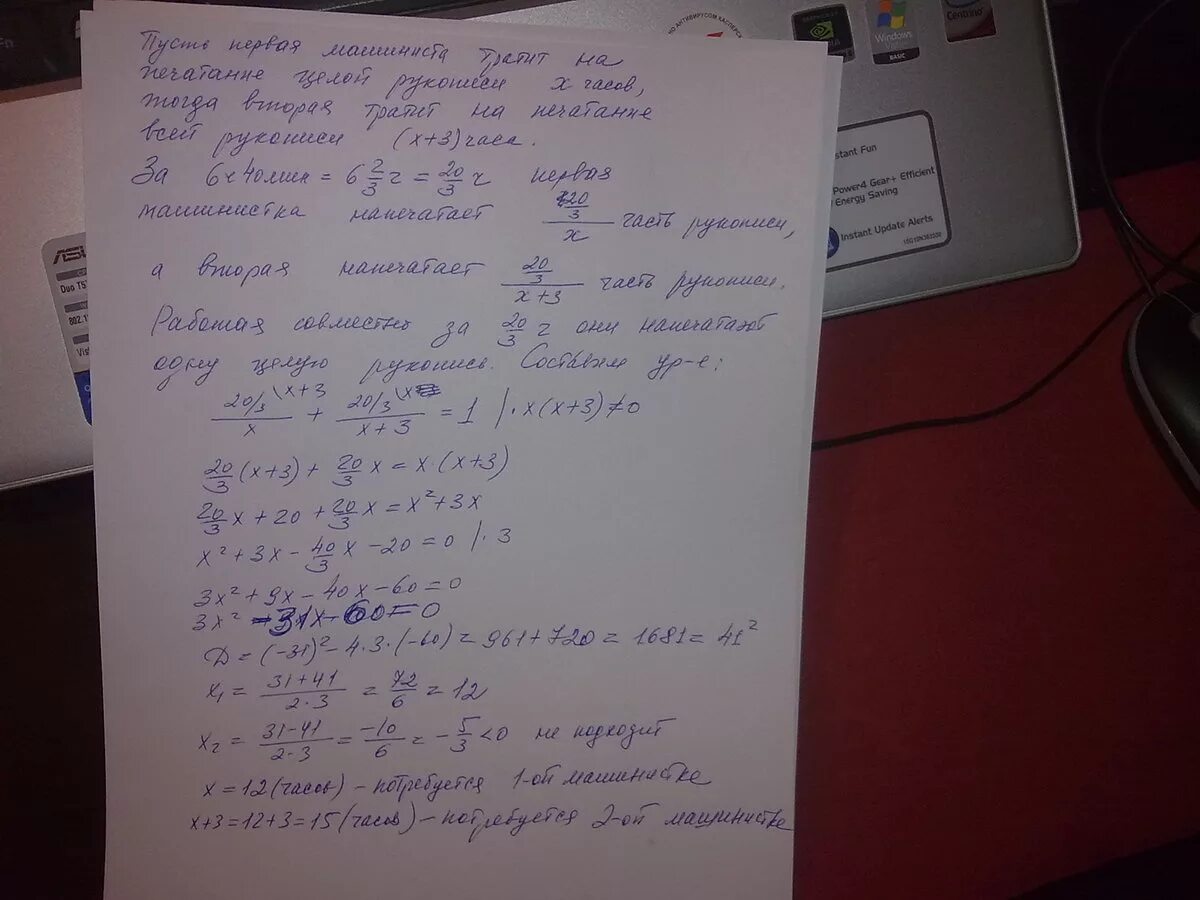 Пусть первая машиниста тратит на
печатание целой рукописи x часов,
тогда вторая тратит на печатание
всей рукописи (x+3) часа.
За 6ч 40мин = 6 2/3 ч = 20/3 ч первая
машинистка напечатает (20/3)/x часть рукописи,
а вторая напечатает (20/3)/(x+3) часть рукописи.
Работая совместно за 20/3 ч они напечатают
одну целую рукопись. Составим ур-е:
(20/3)/x \x+3 + (20/3)/(x+3) \x = 1 | · x(x+3) ≠ 0
20/3 (x+3) + 20/3 x = x (x+3)
20/3 x + 20 + 20/3 x = x² + 3x
x² + 3x - 40/3 x - 20 = 0 | · 3
3x² + 9x - 40x - 60 = 0
3x² - 31x - 60 = 0
D = (-31)² - 4·3·(-60) = 961 + 720 = 1681 = 41²
x₁ = (31+41)/(2·3) = 72/6 = 12
x₂ = (31-41)/(2·3) = -10/6 = -5/3 < 0 не подходит
x = 12 (часов) – потребуется 1-ой машинистке
x+3 = 12+3 = 15 (часов) – потребуется 2-ой машинистке
НО АНТИВИРУСОМ КАСПЕРСК
NVIDIA
Windows Vista
BASIC
Centrino
Instant Fun
Power4 Gear+ Efficient
Energy Saving
Instant Update Alerts
ASU
Duo T5
802.1
Vist